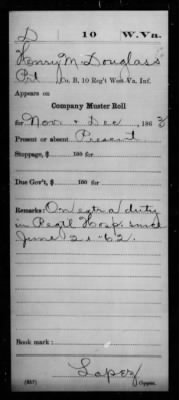 D 10 W.Va.
Henry M. Douglass
Pvt, Co. B, 10 Reg't West Va. Inf.
Appears on
Company Muster Roll
for Nov. & Dec, 1863
Present or absent Present
Stoppage, $ 100 for
Due Gov't, $ 100 for
Remarks: On extra duty
in Regtl Hosp. since
June 21 '62.
Book mark:
Lapez
(357) Copyist.